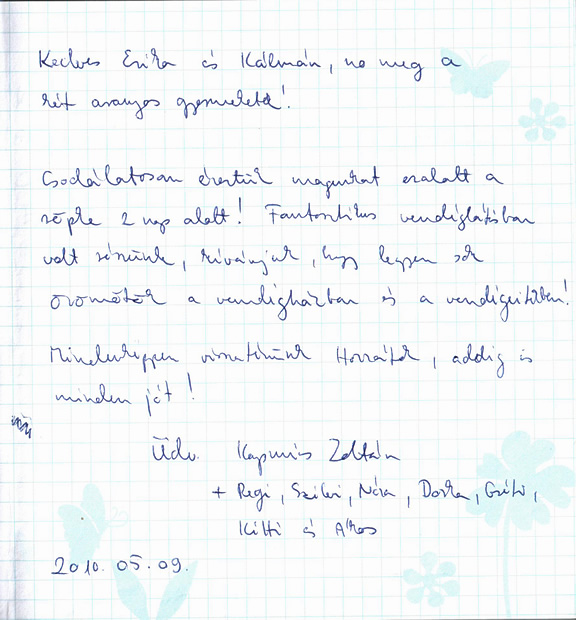 Kedves Erika és Kálmán, no meg a
két aranyos gyermeketek!
Csodálatosan éreztük magunkat ezalatt a
röpke 2 nap alatt! Fantasztikus vendéglátásban
volt részünk, kívánjuk, hogy legyen sok
örömötök a vendégházban és a vendégeitekben!
Mindenképpen visszatérünk Hozzátok, addig is
minden jót!
Üdv. Zoltán
+ Regi, Szilvi, Nóra, Dorka,
Kitti és Ákos
2010. 05. 09.